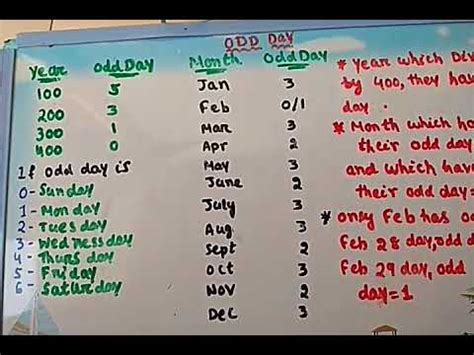 ODD DAY
Year odd Day
100 5
200 3
300 1
400 0
If odd day is
0- Sunday
1- Monday
2- Tuesday
3- Wednessday
4- Thursday
5- Friday
6- Saturday
Month odd Day
Jan 3
Feb 0/1
Mar 3
Apr 2
May 3
June 2
July 3
Aug 3
Sept 2
Oct 3
Nov 2
Dec 3
* Year which Div
by 400, they hav
day.
* Month which ha
their odd day
and which have
their odd day
* only Feb has o
Feb 28 day, odd d
Feb 29 day, odd
day=1